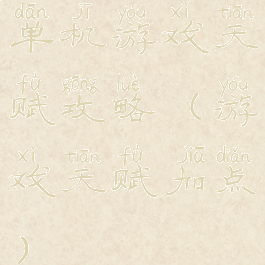 dān jī yóu xì tiān
单机游戏天
fù gōng lüè yóu
赋攻略（游
xì tiān fù jiā diǎn
戏天赋加点
）